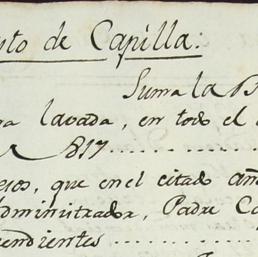 nto de Capilla:
Suma la B
ra lavada, en todo el
817
esos, que en el citado año
Administrador, Padre Ca
endientes